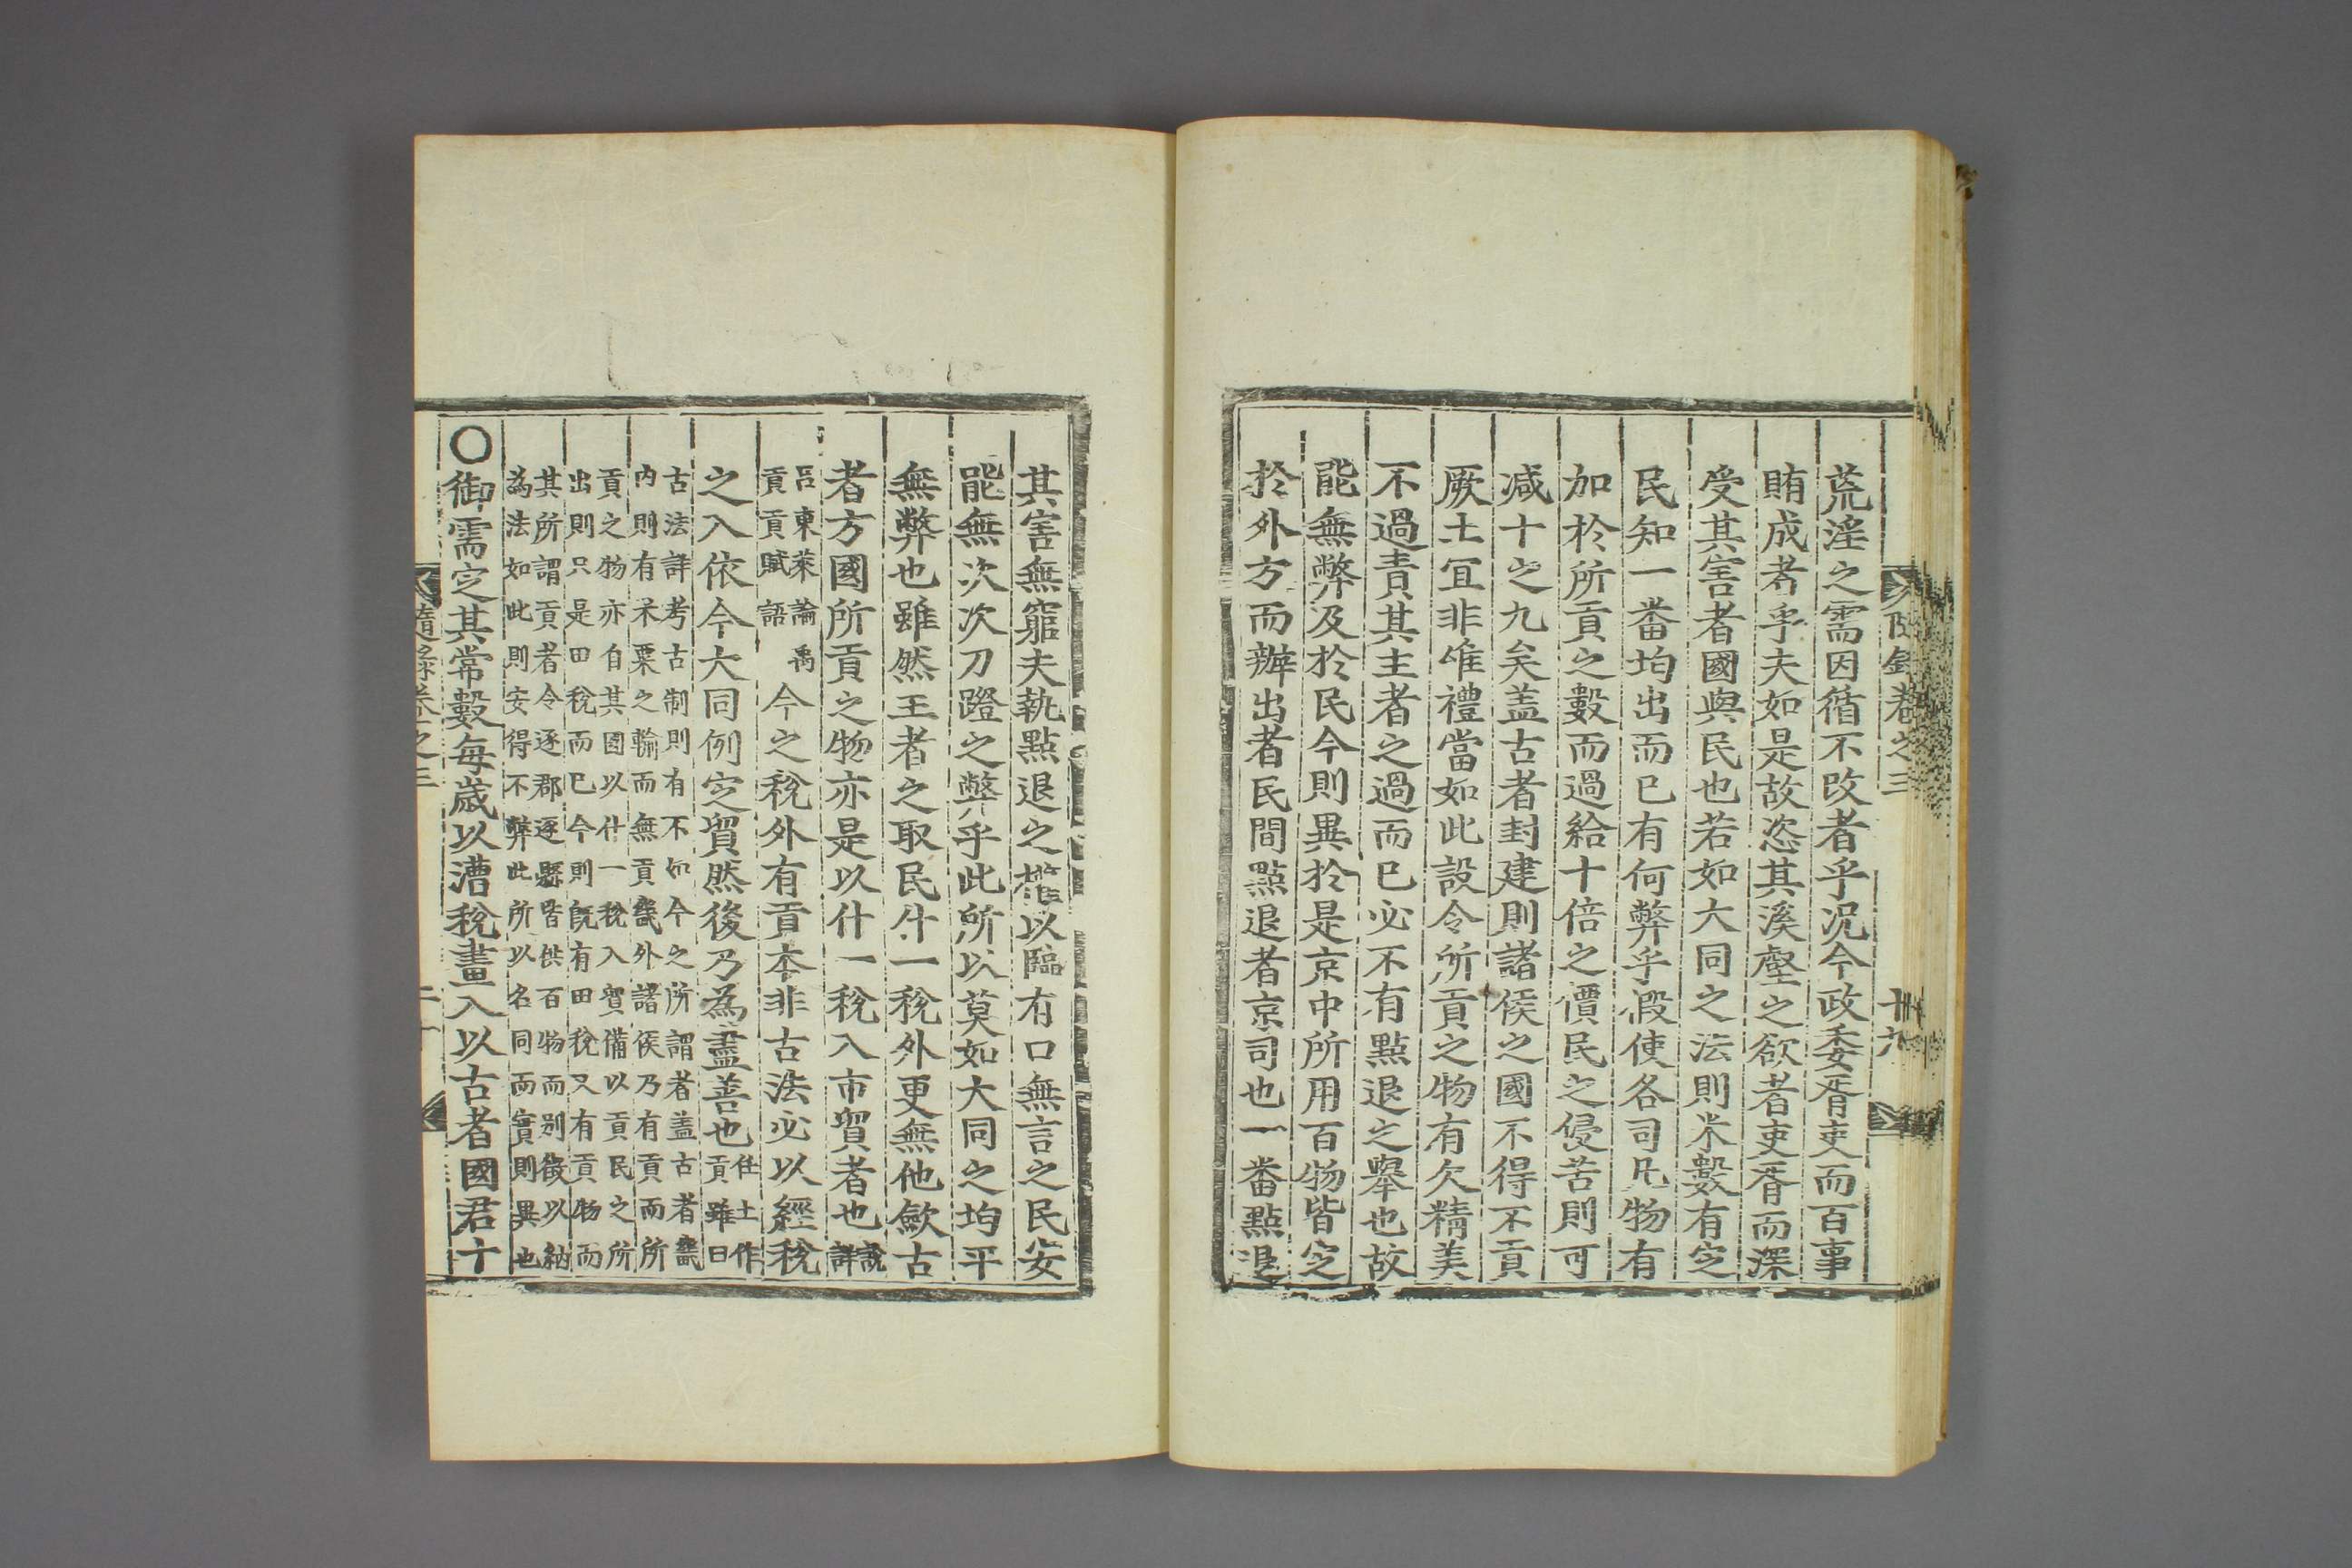 隨錄卷之三
十九
荒淫之需因循不改者乎况今政委胥吏而百事
賄成者乎夫如是故恣其溪壑之欲者吏胥而深
受其害者國與民也若如大同之法則米數有定
民知一番均出而已有何弊乎假使各司凡物有
加於所貢之數而過給十倍之價民之侵苦則可
减十之九矣盖古者封建則諸侯之國不得不貢
厥土宜非唯禮當如此設令所貢之物有欠精美
不過責其主者之過而已必不有點退之擧也故
能無弊及於民今則異於是京中所用百物皆定
於外方而辦出者民間點退者京司也一番點退
其害無窮夫執點退之權以臨有口無言之民安
能無次次刀蹬之弊乎此所以莫如大同之均平
無弊也雖然王者之取民什一稅外更無他歛古
者方國所貢之物亦是以什一稅入市貿者也說詳
呂東萊論禹
貢貢賦語
今之稅外有貢本非古法必以經稅
之入依今大同例定貿然後乃為盡善也
任土作
貢雖曰
古法詳考古制則有不如今之所謂者盖古者畿
內則有米粟之輸而無貢畿外諸侯乃有貢而所
貢之物亦自其國以什一稅入貿備以貢民之所
出則只是田稅而已今則旣有田稅又有貢物而
其所謂貢者令逐郡逐縣皆供百物而别徵以納
為法如此則安得不弊此所以名同而實則異也
○御需定其常數每歲以漕稅畫入以古者國君十
隨錄卷之三
二十